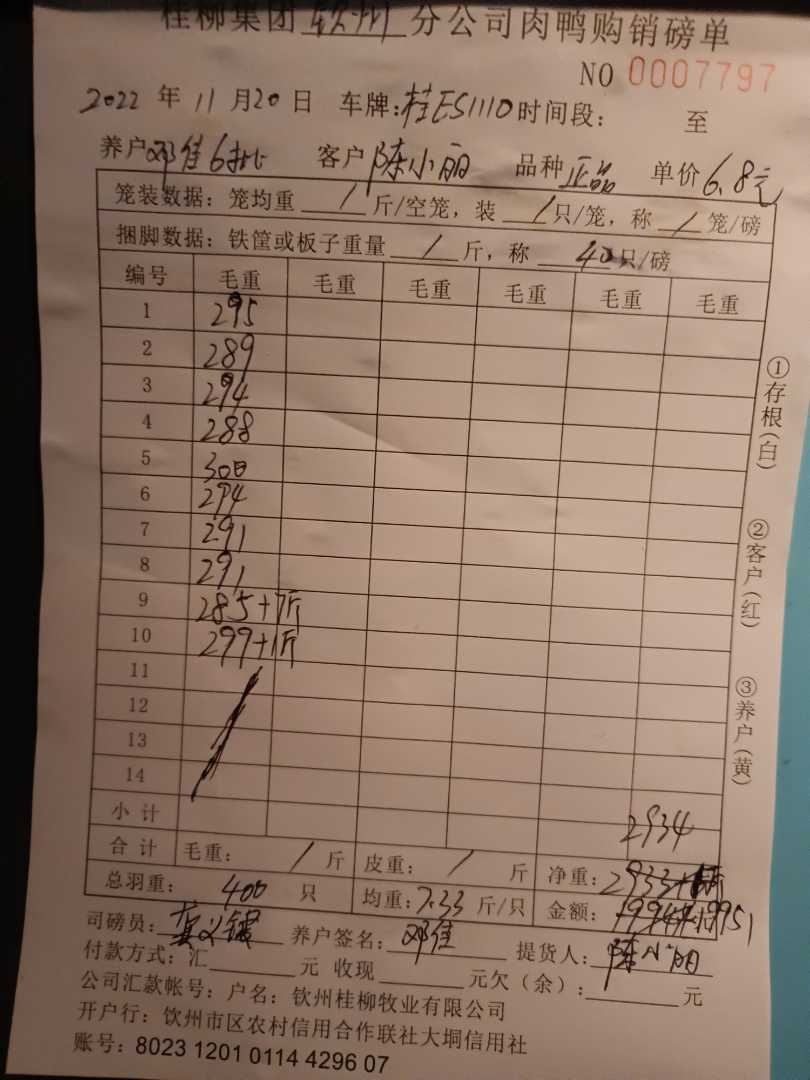 桂柳集团钦州分公司肉鸭购销磅单
NO 0007797
2022年11月20日 车牌:桂ES1110 时间段: 至
养户邓佳6批 客户陈小丽 品种正品 单价6.8元
笼装数据:笼均重/斤/空笼,装/只/笼,称/笼/磅
捆脚数据:铁筐或板子重量/斤,称40只/磅
编号 毛重 毛重 毛重 毛重 毛重 毛重
1 295
2 289
3 294
4 288
5 300
6 294
7 291
8 291
9 285+7斤
10 299+1斤
11
12
13
14
小计 2934
合计 毛重:/斤 皮重:/斤 净重:2933+1斤
总羽重:400只 均重:7.33斤/只 金额:19951
司磅员: 养户签名:邓佳 提货人:陈小丽
付款方式:汇 元 收现 元欠(余): 元
公司汇款帐号:户名:钦州桂柳牧业有限公司
开户行:钦州市区农村信用合作联社大垌信用社
账号:8023 1201 0114 4296 07
①存根(白)
②客户(红)
③养户(黄)